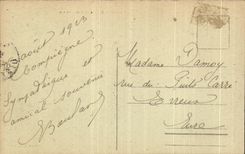 août 1913
Compiègne
Sympathique et
amical souvenir
Madame Damoy
rue du Puits Carré
Evreux
Eure